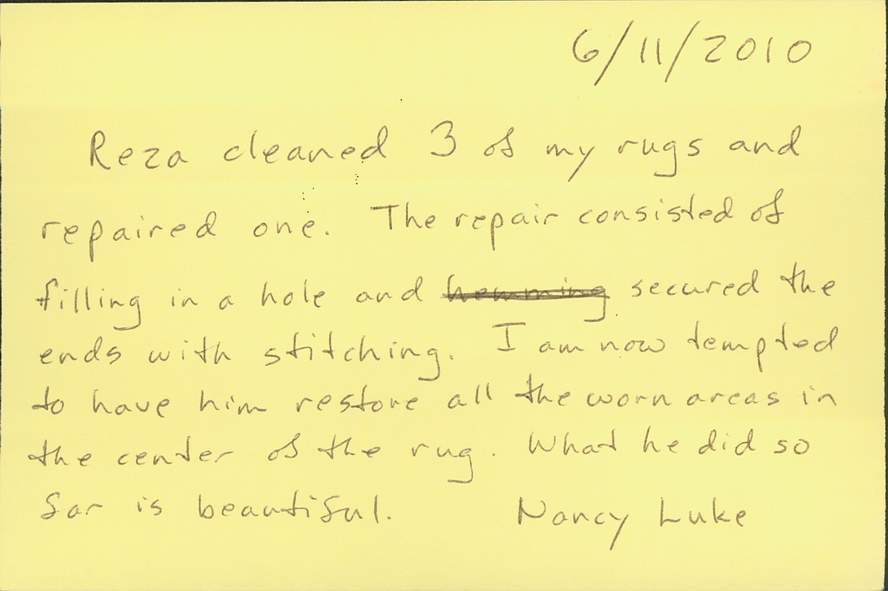 6/11/2010
Reza cleaned 3 of my rugs and
repaired one. The repair consisted of
filling in a hole and hemming secured the
ends with stitching. I am now tempted
to have him restore all the worn areas in
the center of the rug. What he did so
far is beautiful. Nancy Luke